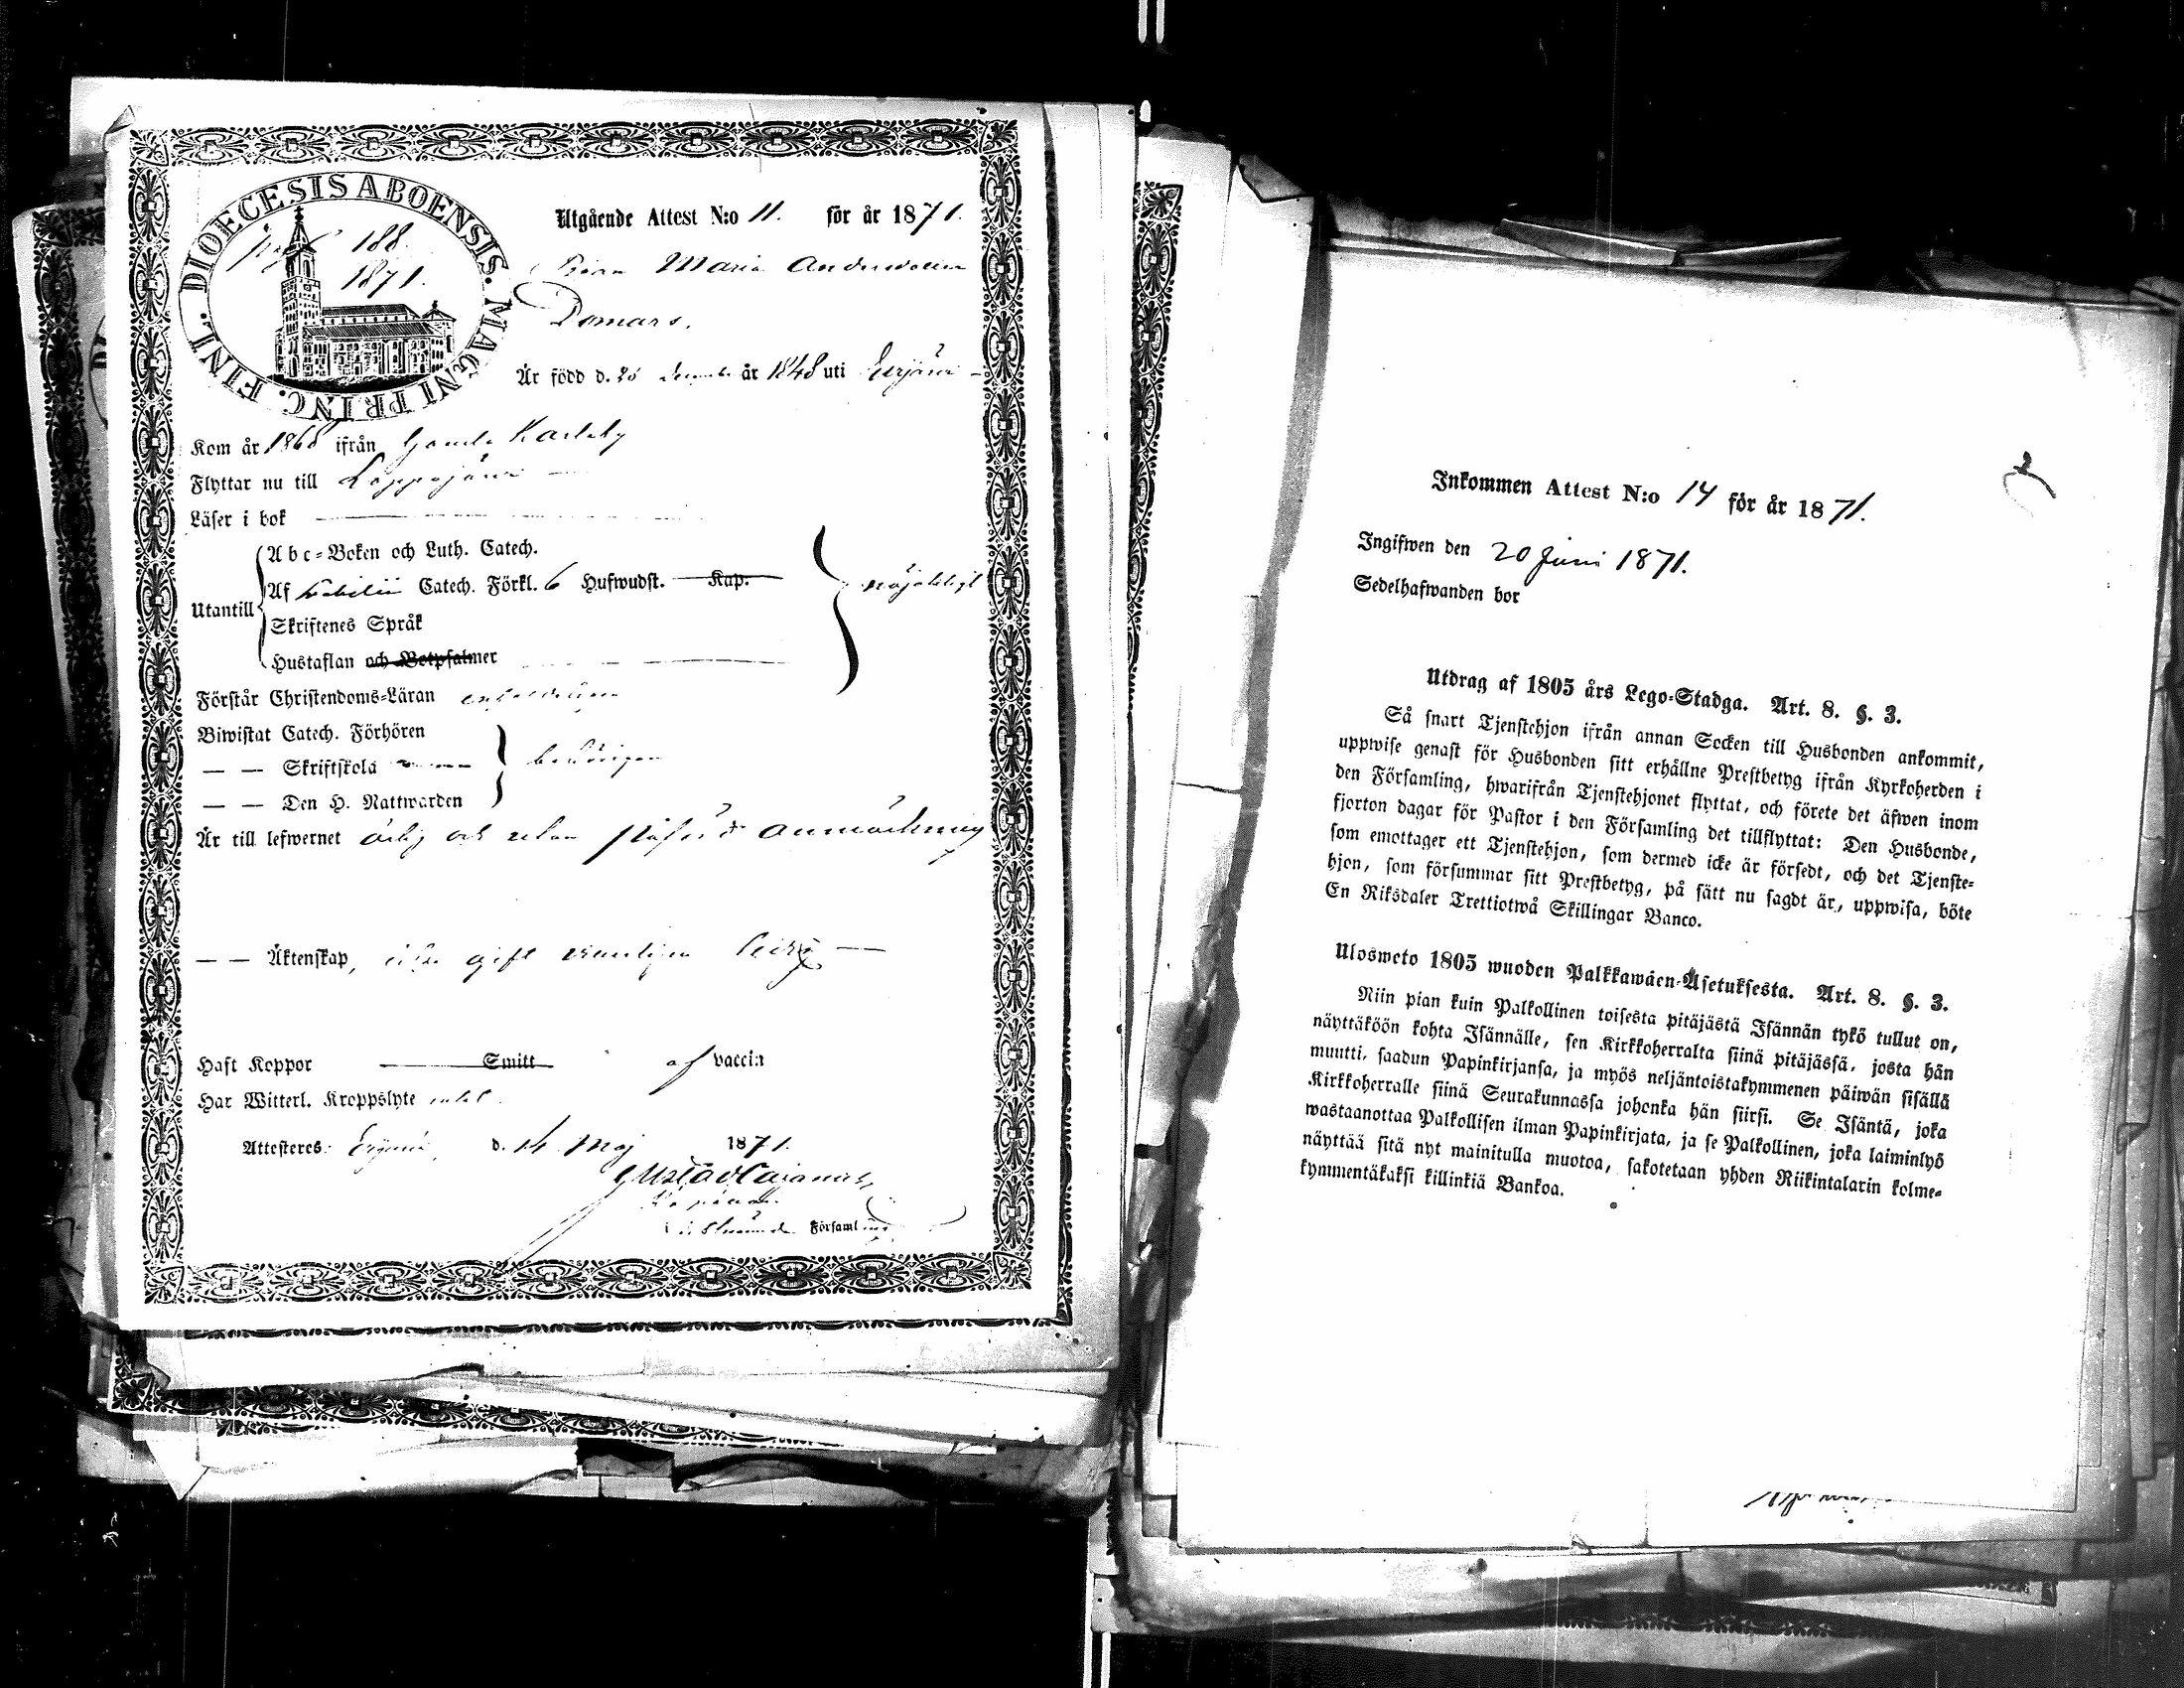 DIOECESIS ABOENSIS. MAGNI PRINC. FINL.
188.
1871.
Utgående Attest N:o 11. för år 1871.
Maria Andersdotter
Domars.
Är född d. December år 1848 uti Evijärvi
Kom år 1868 ifrån Gamla Karleby
Flyttar nu till Lappajärvi
Läser i bok
Utantill
Abc-Boken och Luth. Catech.
Af Catech. Förkl. 6 Hufwudst. Kap.
Skriftenes Språk
Hustaflan och Botpsalmer
nöjaktigt
Förstår Christendoms-Läran enfaldeligen
Biwistat Catech. Förhören
— — Skriftskola
— — Den H. Nattwarden
behörigen
Är till lefwernet ärlig och utan anmärkning
— — Äktenskap, icke gift vemligen ledig
Haft Koppor Smitt af vaccin
Har Witterl. Kroppslyte intet.
Attesteres: Evijärvi d. 14 Maj 1871.
Gustav Cajanus,
Kapellan
Församling
Inkommen Attest N:o 14 för år 1871.
Ingifwen den 20 Juni 1871.
Sedelhafwanden bor
Utdrag af 1805 års Lego-Stadga. Art. 8. §. 3.
Så snart Tjenstehjon ifrån annan Socken till Husbonden ankommit,
uppwise genast för Husbonden sitt erhållne Prestbetyg ifrån Kyrkoherden i
den Församling, hwarifrån Tjenstehjonet flyttat, och förete det äfwen inom
fjorton dagar för Pastor i den Församling det tillflyttat: Den Husbonde,
som emottager ett Tjenstehjon, som dermed icke är försedt, och det Tjenste-
hjon, som försummar sitt Prestbetyg, på sätt nu sagdt är, uppwisa, böte
En Riksdaler Trettiotwå Skillingar Banco.
Ulosweto 1805 wuoden Palkkawäen-Asetuksesta. Art. 8. §. 3.
Niin pian kuin Palkollinen toisesta pitäjästä Isännän tykö tullut on,
näyttäköön kohta Isännälle, sen Kirkkoherralta siinä pitäjässä, josta hän
muutti, saadun Papinkirjansa, ja myös neljäntoistakymmenen päiwän sisällä
Kirkkoherralle siinä Seurakunnassa johonka hän siirsi. Se Isäntä, joka
wastaanottaa Palkollisen ilman Papinkirjata, ja se Palkollinen, joka laiminlyö
näyttää sitä nyt mainitulla muotoa, sakotetaan yhden Riikintalarin kolme-
kymmentäkaksi killinkiä Bankoa.